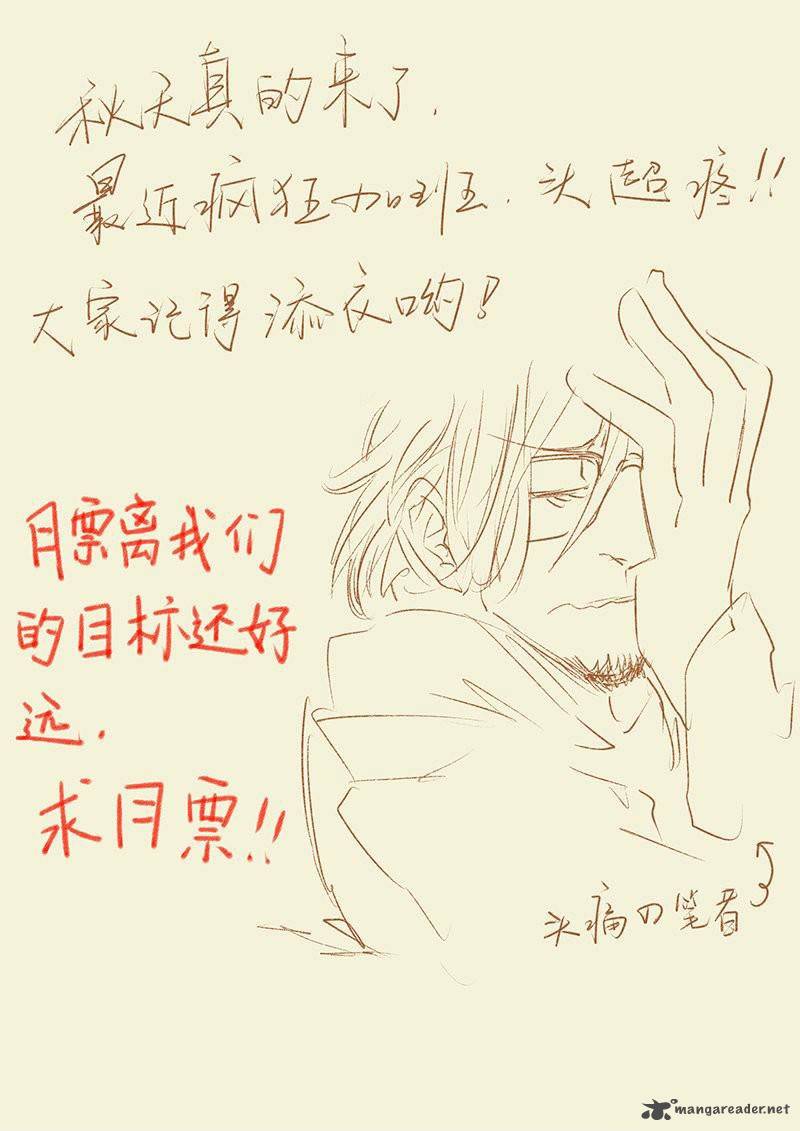 秋天真的来了.
最近疯狂加班.头超疼!!
大家记得添衣哟!
月票离我们
的目标还好
远.
求月票!!
头痛の笔者
mangareader.net